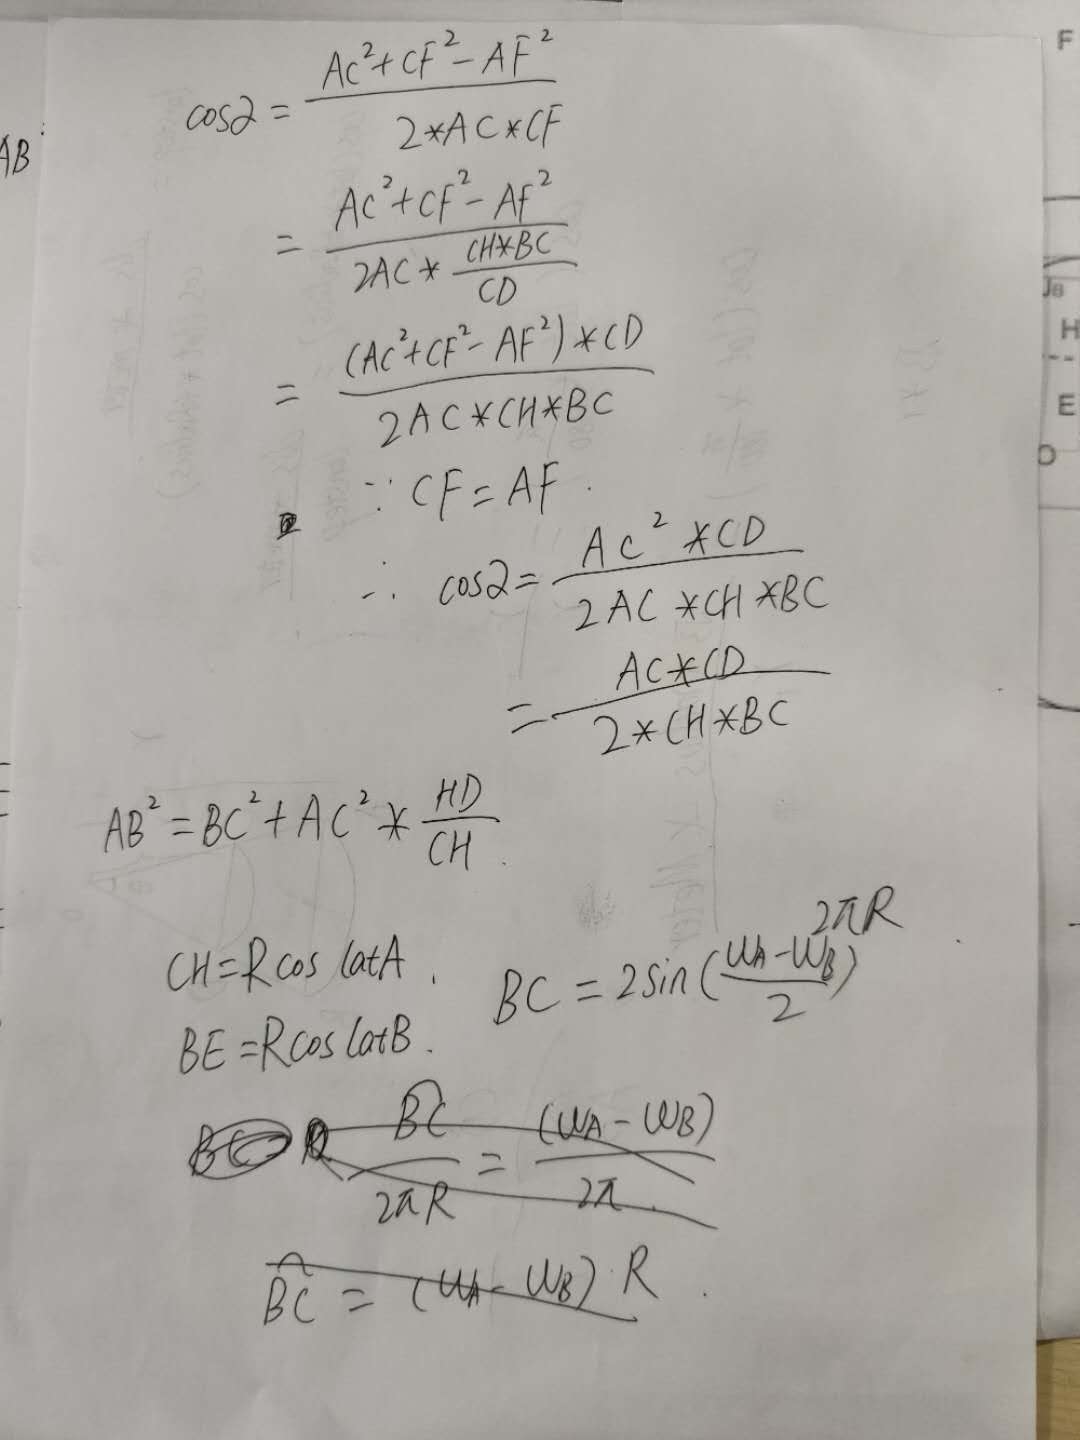 cos2 = (AC²+CF²-AF²)/(2*AC*CF)
AB
= (AC²+CF²-AF²)/(2AC*(CH*BC)/CD)
= ((AC²+CF²-AF²)*CD)/(2AC*CH*BC)
∵ CF=AF.
∴ cos2= (AC²*CD)/(2AC*CH*BC)
= (AC*CD)/(2*CH*BC)
AB²=BC²+AC²*HD/CH.
CH=Rcos latA.
2πR
BC=2sin((ωA-ωB)/2)
BE=Rcos latB.
BC/2πR = (ωA-ωB)/2π.
BC = (ωA-ωB)·R.
F
H
E